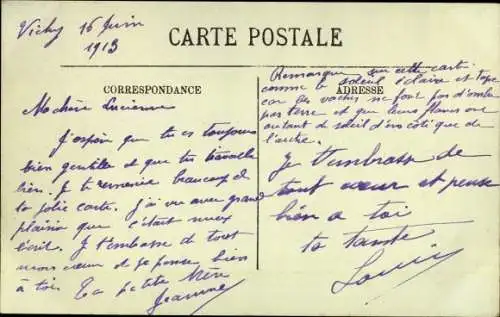 Vichy 16 Juin
1913
CARTE POSTALE
CORRESPONDANCE
Ma chère Lucienne
J'espère que tu es toujours
bien gentille et que tu travailles
bien. Je te remercie beaucoup de
ta jolie carte. J'ai vu avec grand
plaisir que c'était mieux
écrit. Je t'embrasse de tout
mon cœur et je pense bien
à toi. Ta petite Mère
Jeanne
Remarque sur cette carte
comme le soleil éclaire et tape
car les vaches ne font pas d'ombre
ADRESSE
par terre et que leurs flancs ont
autant de soleil d'un côté que de
l'autre.
Je t'embrasse de
tout cœur et pense
bien à toi
ta tante